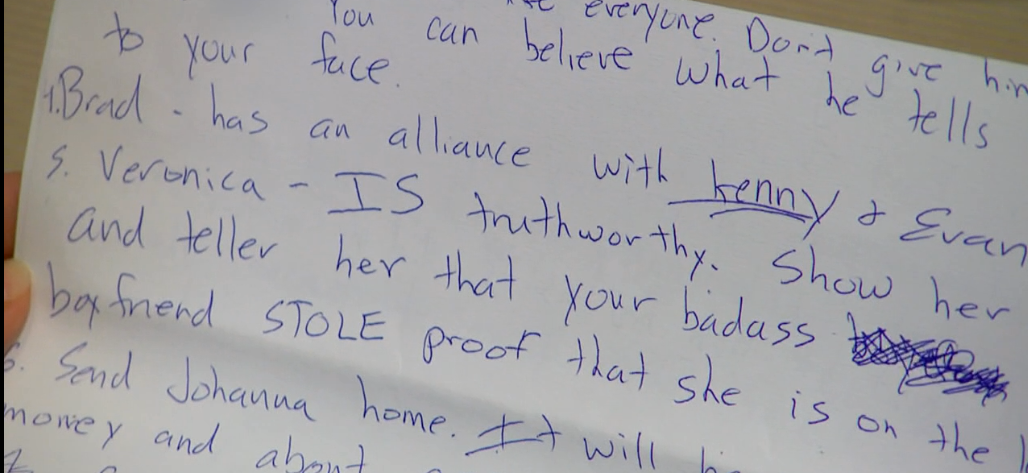 everyone. Don't give him
to your face. You can believe what he tells
4. Brad - has an alliance with kenny & Evan
5. Veronica - IS truthworthy. Show her
and teller her that your badass
boyfriend STOLE proof that she is on the
6. Send Johanna home. It will
money and about